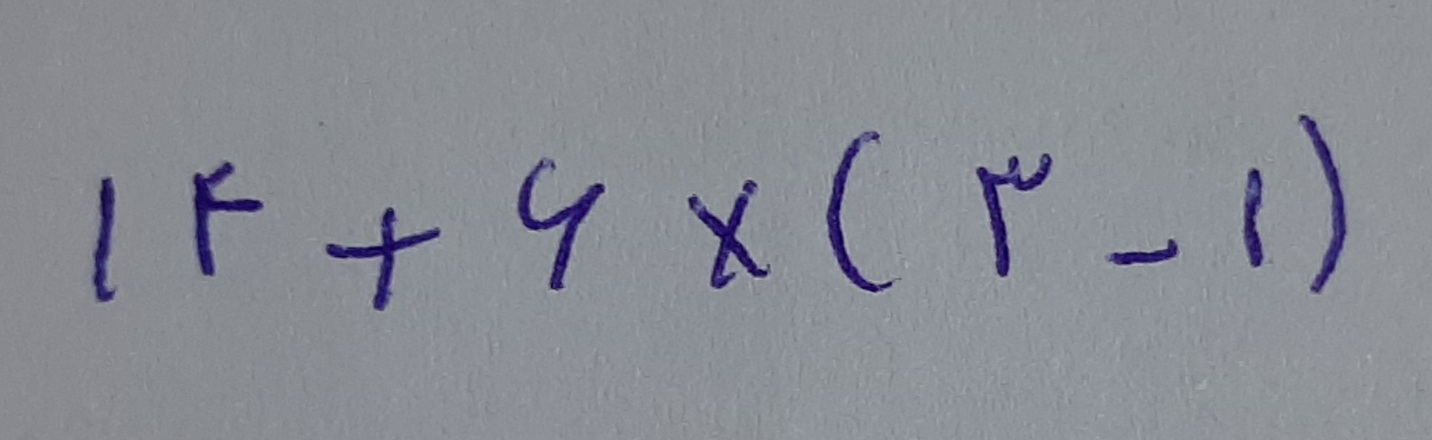 ۱۴ + ۶ × ( ۳ - ۱ )